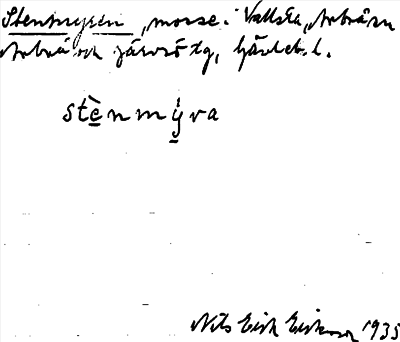 Stenmyren, mosse i Vallsta, Arbrå sn
Arbrå och Järvsö tg, Gävleb. l.
stè̱nmý̱va
Nils Erik Eriksson 1935